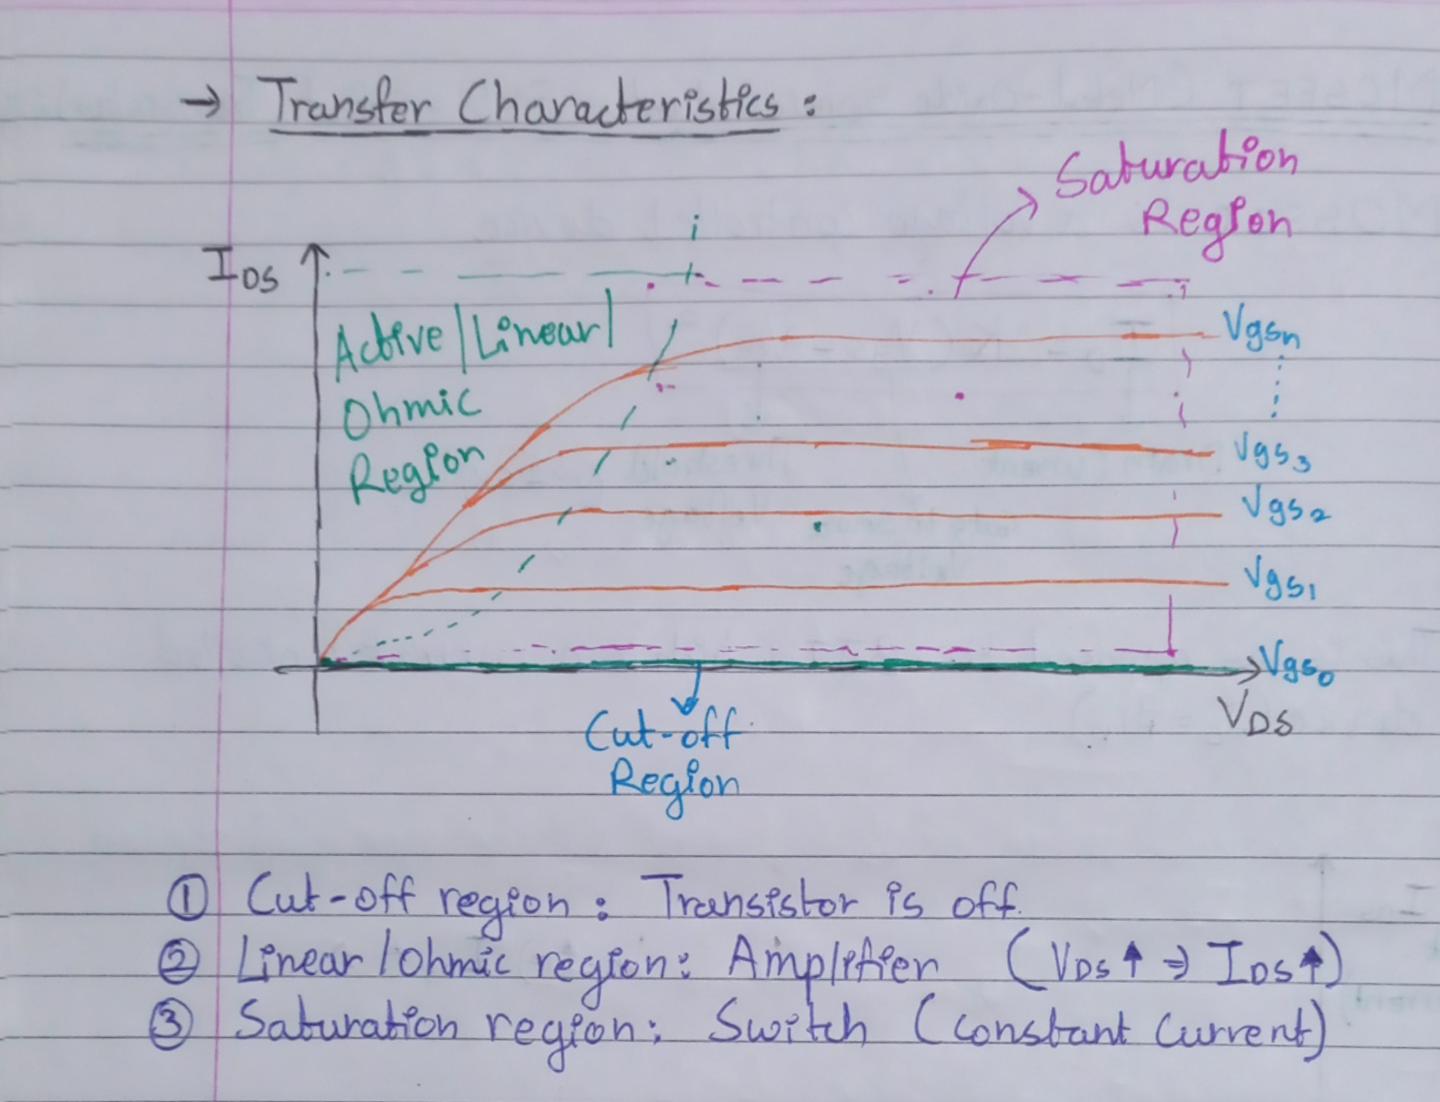 → Transfer Characteristics :
Saturation
Region
I_DS
Active/Linear/
Ohmic
Region
Vgsn
Vgs3
Vgs2
Vgs1
Vgs0
V_DS
Cut-off
Region
① Cut-off region : Transistor is off.
② Linear/Ohmic region : Amplifier (V_DS ↑ ⇒ I_DS ↑)
③ Saturation region : Switch (Constant Current)